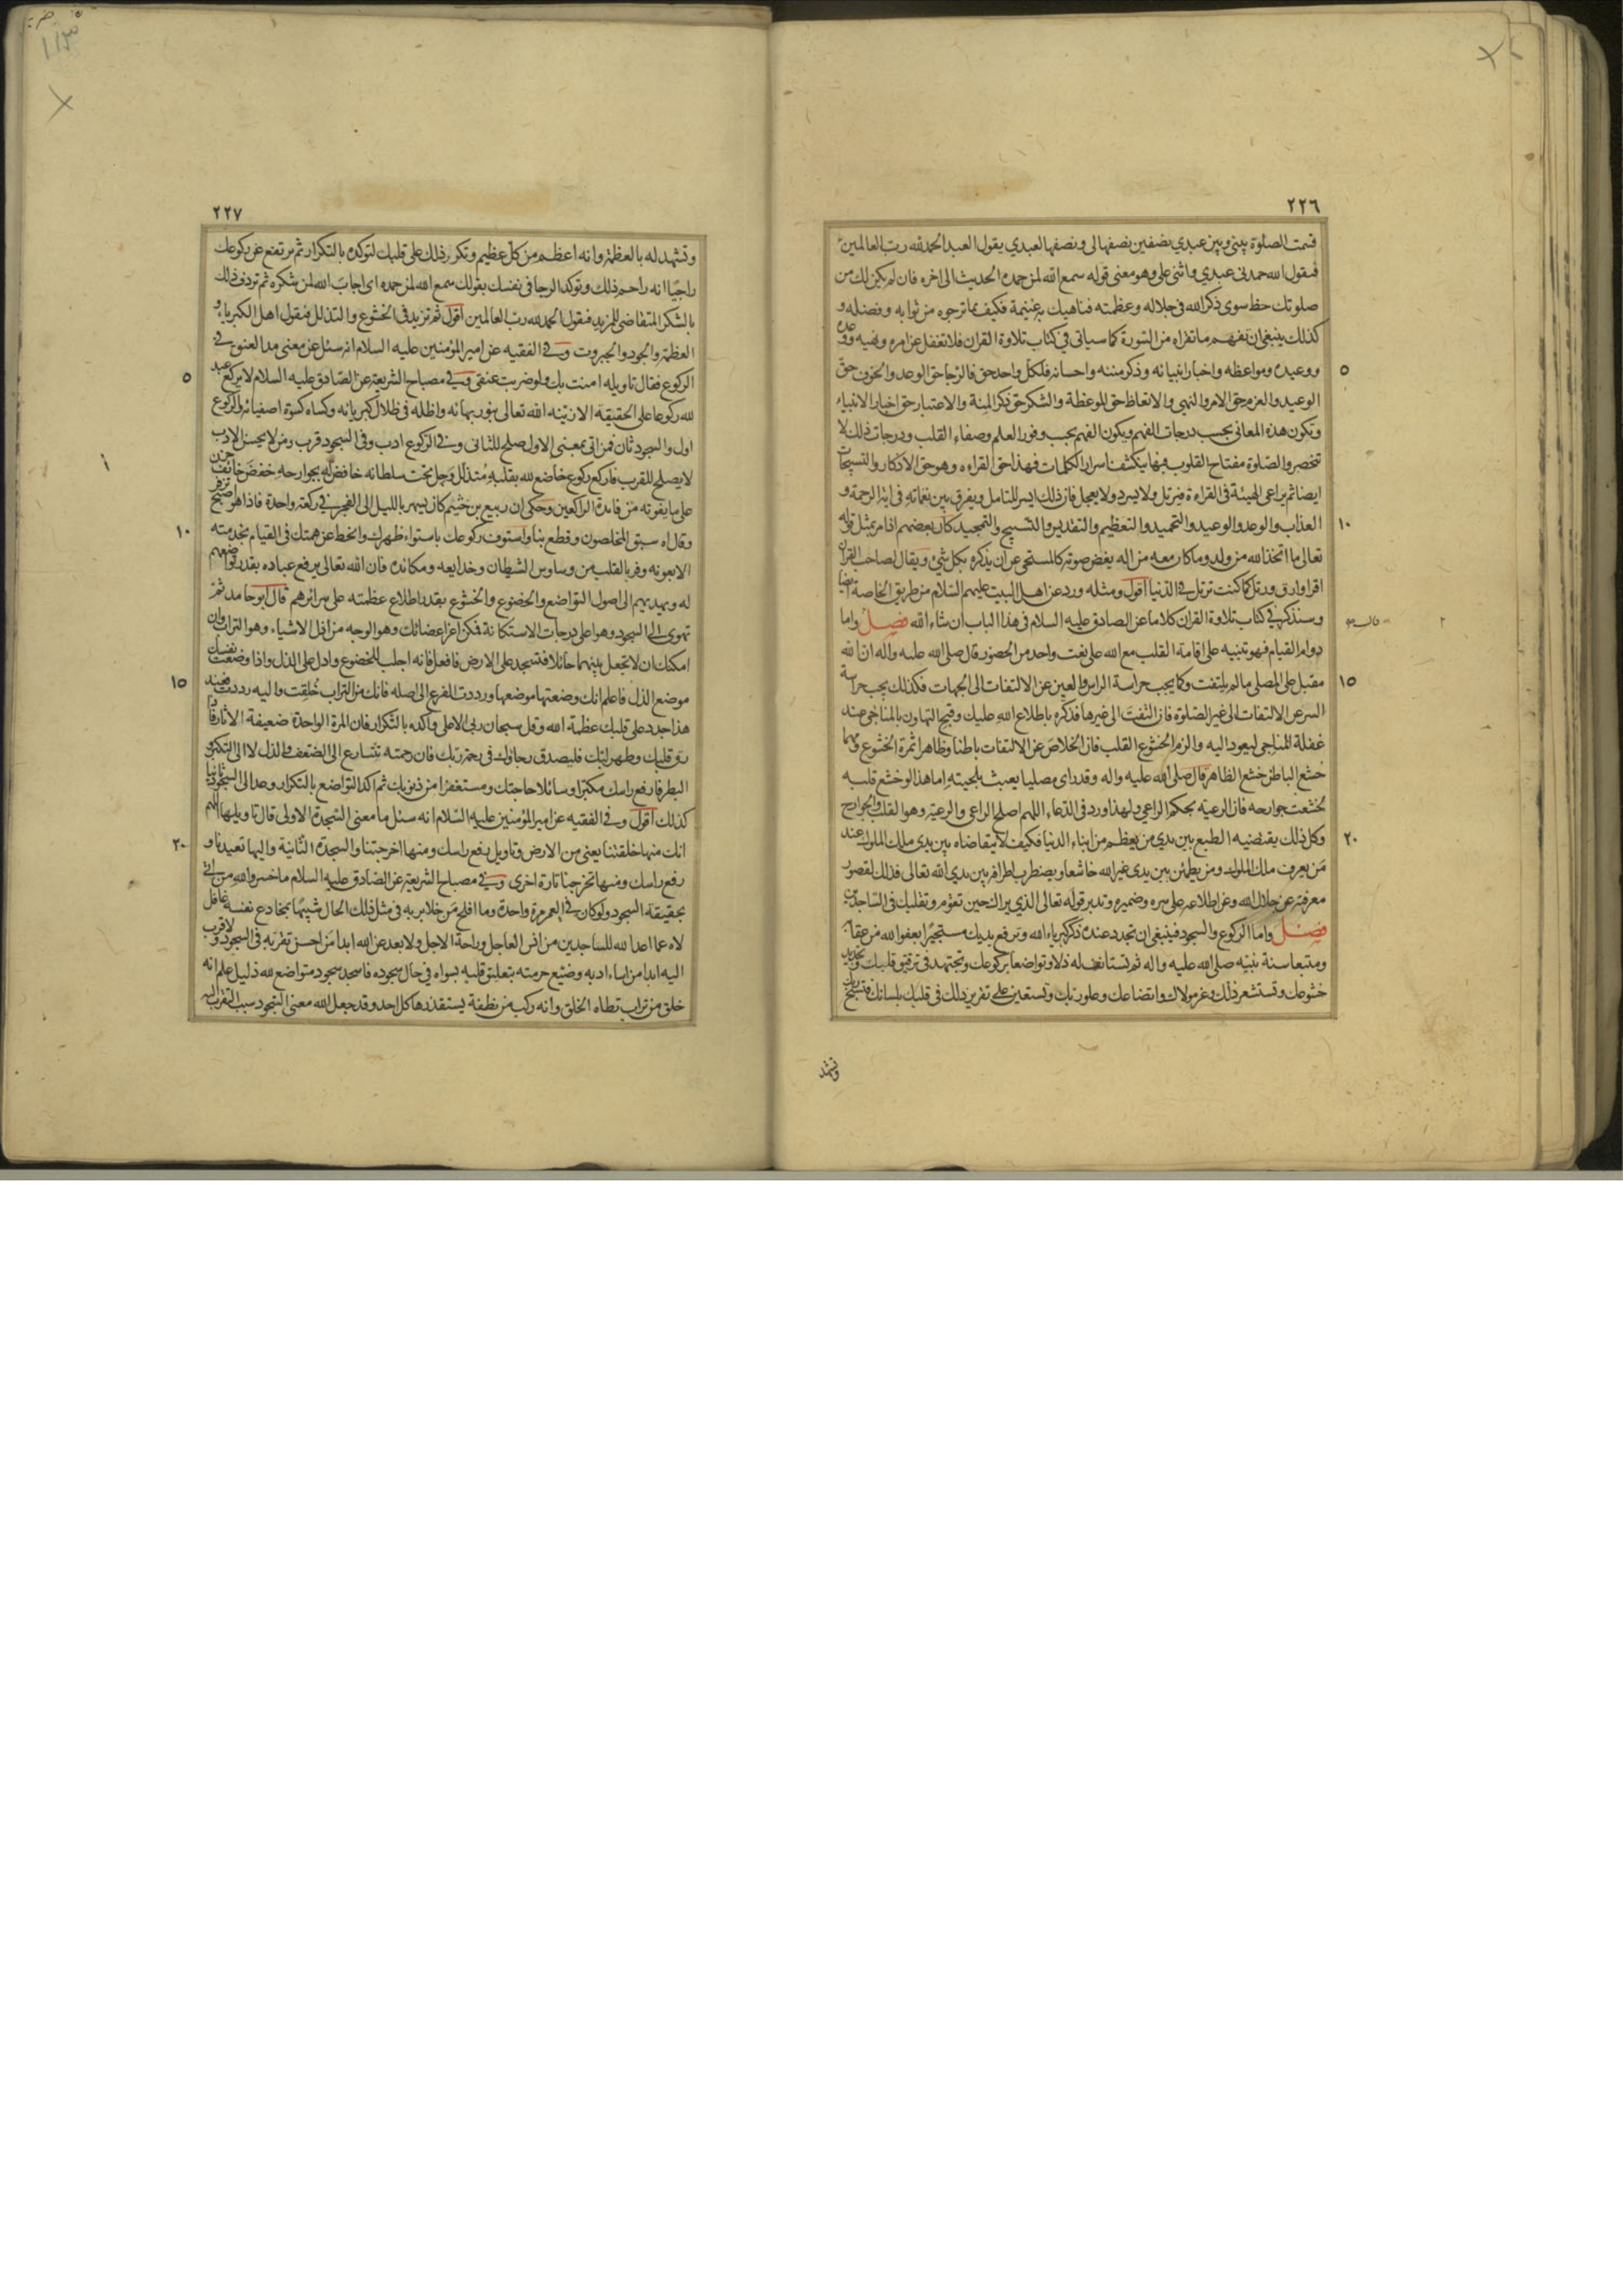 ٢٢٦
قسمت الصلوة بيني وبين عبدي نصفين نصفها لي ونصفها لعبدي يقول العبد الحمد لله رب العالمين
فيقول الله حمدني عبدي واثنى علي وهو معنى قوله سمع الله لمن حمده الحديث الى اخره فان لم يكن لك من
صلوتك حظ سوى ذكر الله في جلاله وعظمته فناهيك به غنيمة فكيف بما ترجوه من ثوابه وفضله و
كذلك ينبغي ان تفهم ما تقراه من السورة كما سياتي في كتاب تلاوة القران فلا تغفل عن امره ونهيه ووعده
٥
ووعيده ومواعظه واخبار انبيائه وذكر مننه واحسانه فلكل واحد حق فالرجا حق الوعد والخوف حق
الوعيد والعزم حق الامر والنهي والاتعاظ حق الموعظة والشكر حق ذكر المنة والاعتبار حق اخبار الانبياء
وتكون هذه المعاني بحسب درجات الفهم ويكون الفهم بحسب وفور العلم وصفاء القلب ودرجات ذلك لا
تنحصر والصلوة مفتاح القلوب فيها ينكشف اسرار الكلمات فهذا حق القراءه وهو حق الاذكار والتسبيحات
ايضا ثم يراعي الهيئة في القراءة فيرتل ولا يسرد ولا يعجل فان ذلك ايسر للتامل ويفرق بين نغماته في اية الرحمة و
١٠
العذاب والوعد والوعيد والتحميد والتعظيم والتقديس والتسبيح والتمجيد كان بعضهم اذا مر بمثل قوله
تعالى ما اتخذ الله من ولد وما كان معه من اله يغض صوته كالمستحي عن ان يذكره بكل شيء ويقال لصاحب القران
اقرا وارق ورتل كما كنت ترتل في الدنيا اقول ومثله ورد عن اهل البيت عليهم السلام من طريق الخاصة ايضا
وسنذكره في كتاب تلاوة القران كلاما عن الصادق عليه السلام في هذا الباب ان شاء الله فصل واما
دوام القيام فهو تنبيه على اقامة القلب مع الله على نعت واحد من الحضور قال صلى الله عليه واله ان الله
١٥
مقبل على المصلي ما لم يلتفت وكما يجب حراسة الراس والعين عن الالتفات الى الجهات فكذلك يجب حراسة
السر عن الالتفات الى غير الصلوة فان التفت الى غيرها فذكره باطلاع الله عليك وقبح التهاون بالمناجى عند
غفلة المناجي ليعود اليه والزم الخشوع القلب فان الخلاص عن الالتفات باطنا وظاهرا ثمرة الخشوع ومهما
خشع الباطن خشع الظاهر قال صلى الله عليه واله وقد راى مصليا يعبث بلحيته اما هذا لو خشع قلبه
لخشعت جوارحه فان الرعية بحكم الراعي ولهذا ورد في الدعاء اللهم اصلح الراعي والرعية وهو القلب والجوارح
٢٠
وكل ذلك يقتضيه الطبع بين يدي من يعظم من ابناء الدنيا فكيف لا يتقاضاه بين يدي ملك الملوك عند
من يعرف ملك الملوك ومن يطمئن بين يدي غير الله خاشعا ويضطرب اطرافه بين يدي الله تعالى فذلك لقصور
معرفته عن جلال الله وعن اطلاعه على سره وضميره وتدبر قوله تعالى الذي يراك حين تقوم وتقلبك في الساجدين
فصل واما الركوع والسجود فينبغي ان تجدد عنده ذكر كبرياء الله وترفع يديك مستجيرا بعفو الله من عقابه
ومتبعا سنة نبيه صلى الله عليه واله ثم تستانف له ذلا وتواضعا بركوعك وتجتهد في ترقيق قلبك وتجديد
خشوعك وتستشعر ذلك وعز مولاك واتضاعك وعلو ربك وتستعين على تقرير ذلك في قلبك بلسانك فتسبح ربك
وتشهد
٢٢٧
وتشهد له بالعظمة وانه اعظم من كل عظيم وتكرر ذلك على قلبك لتوكده بالتكرار ثم ترتفع عن ركوعك
راجيا انه راحم ذلك وتوكد الرجا في نفسك بقولك سمع الله لمن حمده اي اجاب الله لمن شكره ثم تردف ذلك
بالشكر المتقاضي للمزيد فتقول الحمد لله رب العالمين اقول ثم تزيد في الخشوع والتذلل فتقول اهل الكبرياء و
العظمة والجود والجبروت وفي الفقيه عن امير المؤمنين عليه السلام انه سئل عن معنى مد العنق في
٥
الركوع فقال تاويله امنت بك ولو ضربت عنقي وفي مصباح الشريعة عن الصادق عليه السلام لا يركع عبد
لله ركوعا على الحقيقة الا زينه الله تعالى بنور بهائه واظله في ظلال كبريائه وكساه كسوة اصفيائه والركوع
اول والسجود ثان فمن اتى بمعنى الاول صلح للثاني وفي الركوع ادب وفي السجود قرب ومن لا يحسن الادب
لا يصلح للقرب فاركع ركوع خاضع لله بقلبه متذلل وجل تحت سلطانه خافض له بجوارحه خفض خائف حزن
على ما يفوته من فائدة الراكعين وحكى ان ربيع بن خثيم كان يسهر بالليل الى الفجر في ركعة واحدة فاذا هو اصبح تزفر
١٠
وقال اه سبق المخلصون وقطع بنا واستوف ركوعك باستواء ظهرك وانحط عن همتك في القيام بخدمته
الا بعونه وفر بالقلب من وساوس الشيطان وخدايعه ومكائده فان الله تعالى يرفع عباده بقدر تواضعهم
له ويهديهم الى اصول التواضع والخضوع والخشوع بقدر اطلاع عظمته على سرائرهم قال ابو حامد ثم
تهوى الى السجود وهو اعلى درجات الاستكانة فمكن اعز اعضائك وهو الوجه من اذل الاشياء وهو التراب وان
امكنك ان لا تجعل بينهما حائلا فتسجد على الارض فافعل فانه اجلب للخضوع وادل على الذل واذا وضعت نفسك
١٥
موضع الذل فاعلم انك وضعتها موضعها ورددت الفرع الى اصله فانك من التراب خلقت واليه رددت فعند
هذا جدد على قلبك عظمة الله وقل سبحان ربي الاعلى واكده بالتكرار فان المرة الواحدة ضعيفة الاثار فاذا
رق قلبك وطهر لبك فليصدق رجاؤك في رحمة ربك فان رحمته تتسارع الى الضعف والذل لا الى التكبر و
البطر فارفع راسك مكبرا وسائلا حاجتك ومستغفرا من ذنوبك ثم اكد التواضع بالتكرار وعد الى السجود ثانيا
كذلك اقول وفي الفقيه عن امير المؤمنين عليه السلام انه سئل ما معنى السجدة الاولى قال تاويلها اللهم
٢٠
انك منها خلقتنا يعني من الارض وتاويل رفع راسك ومنها اخرجتنا والسجدة الثانية واليها تعيدنا و
رفع راسك ومنها تخرجنا تارة اخرى وفي مصباح الشريعة عن الصادق عليه السلام ما خسر والله من اتى
بحقيقة السجود ولو كان في العمر مرة واحدة وما افلح من خلا بربه في مثل ذلك الحال شبيها بمخادع نفسه غافل
لاه عما اعد الله للساجدين من انس العاجل وراحة الاجل ولا بعد عن الله ابدا من احسن تقربه في السجود ولا قرب
اليه ابدا من اساء ادبه وضيع حرمته بتعليق قلبه بسواه في حال سجوده فاسجد سجود متواضع لله ذليل علم انه
خلق من تراب تطاه الخلق وانه ركب من نطفة يستقذرها كل احد وقد جعل الله معنى السجود سبب التقرب اليه